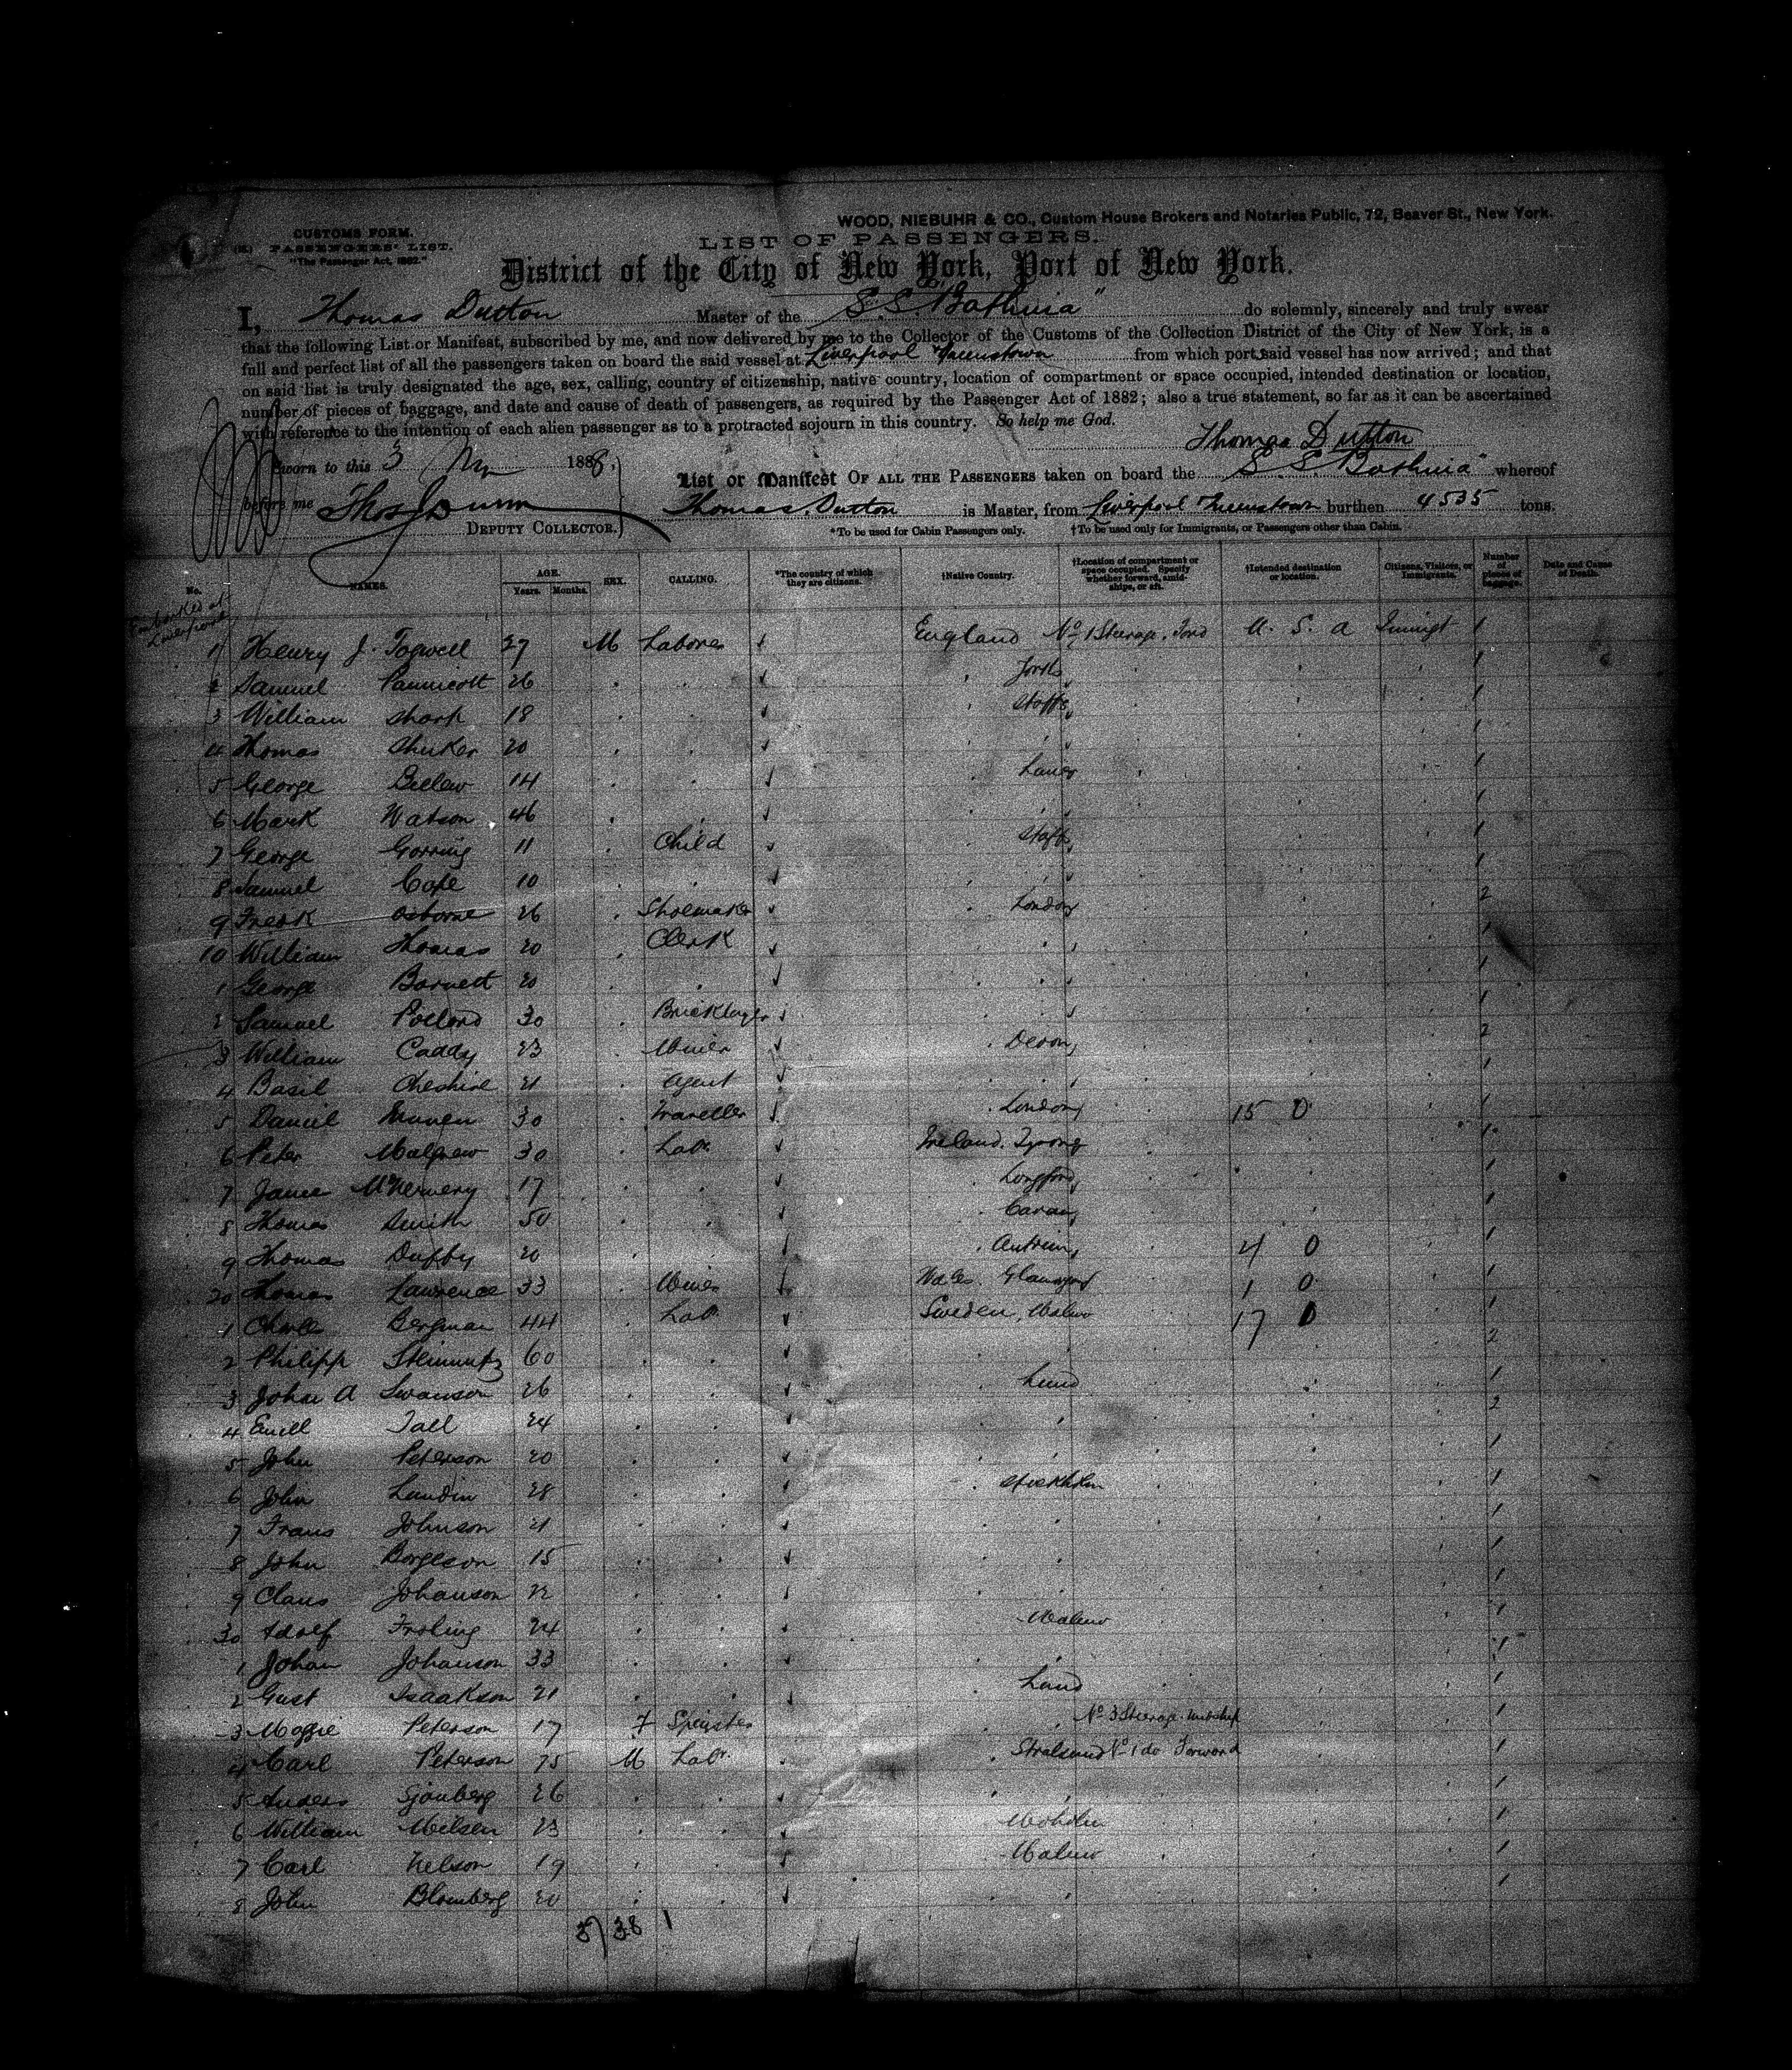 WOOD, NIEBUHR & CO., Custom House Brokers and Notaries Public, 72, Beaver St., New York.
CUSTOMS FORM.
PASSENGERS' LIST.
"The Passenger Act, 1882."
LIST OF PASSENGERS.
District of the City of New York, Port of New York.
I, Thomas Dutton Master of the S.S. "Bothnia" do solemnly, sincerely and truly swear
that the following List or Manifest, subscribed by me, and now delivered by me to the Collector of the Customs of the Collection District of the City of New York, is a
full and perfect list of all the passengers taken on board the said vessel at Liverpool Queenstown from which port said vessel has now arrived; and that
on said list is truly designated the age, sex, calling, country of citizenship, native country, location of compartment or space occupied, intended destination or location,
number of pieces of baggage, and date and cause of death of passengers, as required by the Passenger Act of 1882; also a true statement, so far as it can be ascertained
with reference to the intention of each alien passenger as to a protracted sojourn in this country. So help me God.
Thomas Dutton
Sworn to this 3 1888,
List or Manifest OF ALL THE PASSENGERS taken on board the S.S. "Bothnia" whereof
before me Thos J Dunn
Thomas Dutton is Master, from Liverpool Queenstown burthen 4535 tons.
DEPUTY COLLECTOR.
*To be used for Cabin Passengers only. †To be used only for Immigrants, or Passengers other than Cabin.
No. NAMES. AGE. Years. Months. SEX. CALLING. *The country of which they are citizens. †Native Country. †Location of compartment or space occupied. Specify whether forward, amidships, or aft. †Intended destination or location. Citizens, Visitors, or Immigrants. Number of pieces of baggage. Date and Cause of Death.
Embarked at Liverpool
1 Henry J. Togwell 27 M Laborer England No 1 Steerage. Ford U. S. A 1
2 Samuel 26 1
3 William Sharp 18 Staffs 1
4 Thomas 20 1
5 George 14 Lancs 1
6 Mark Watson 46 1
7 George Gorring 11 Child Staff 1
8 Samuel Cope 10 1
9 Fredk Osborne 26 Shoemaker London 2
10 William Thomas 20 Clerk 1
1 George Barnett 20 1
2 Samuel Pollard 30 Bricklayer 1
3 William Caddy 23 Miner Devon 2
4 Basil Cheshire 21 Agent 1
5 Daniel 30 Traveller London 15 0 1
6 Peter 30 Labr Ireland. Tyrone 1
7 James 17 Longford 1
8 Thomas Smith 50 Cavan 1
9 Thomas Duffy 20 Antrim 4 0 1
20 Thomas Lawrence 33 Miner Wales. 1 0 1
1 Charles Bergman 44 Labr Sweden, Malmo 17 0 1
2 Philipp 60 2
3 Johan A Swanson 26 Lund 1
4 Emill Tall 24 2
5 John Peterson 20 1
6 John Lundin 28 Stockholm 1
7 Frans Johnson 21 1
8 John Borgeson 15 1
9 Claus Johanson 22 1
30 Adolf Froling 24 Malmo 1
1 Johan Johanson 33 1
2 Gust Isaakson 21 Lund 1
3 Maggie Peterson 17 F Spinster No 3 Steerage. midship 1
4 Carl Peterson 75 M Labr. Stralsund No 1 do Forward 1
5 Anders Sjonberg 26 1
6 William 23 1
7 Carl Nelson 19 Malmo 1
8 John Blomberg 20 1
37 38 1